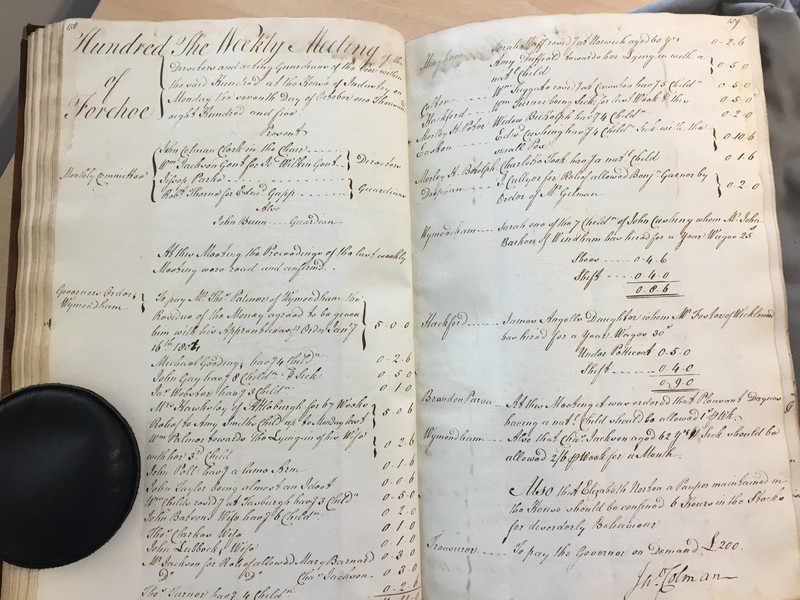 158
Hundred of Forehoe
The Weekly Meeting of the
Directors and acting Guardians of the Poor within
the said Hundred at the House of Industry on
Monday the seventh Day of October one Thousand
eight Hundred and five
Present
Monthly Committee
John Colman Clerk in the Chair
Wm Jackson Gent for Wilkin Gent
Directors
Jessop Parke
Robt Thorne for Edmd Gapp
Guardians
Also
John Bunn Guardian
At this Meeting the Proceedings of the last weekly
Meeting were read and confirmed.
Governors Orders
Wymondham
To pay Mr Thos Palmer of Wymondham the
Residue of the Money agreed to be given
him with his Apprentice Order Jany
16th
5-0-0
Michael Goodings havg 4 Childn 0-2-6
John Gay havg 8 Childn & Sick 0-5-0
Jas Webster havg 5 Childn 0-1-0
Mr Hawksley of Attleburgh for 67 Weeks
Relief to Amy Smiths Child up to Monday last
5-0-6
Wm Palmer towards the Lyingin of his Wife
with her 3d Child
0-2-6
John Poll havg a lame Arm 0-1-6
John Taylor being almost an Ideot 0-0-6
Wm Childs resdg at Tasburgh havg 5 Childn 0-5-0
John Barsons Wife havg 6 Childn 0-2-0
Thos Clarkes Wife 0-1-0
John Lubbock's Wife 0-1-0
Mr Jackson for Relief allowed Mary Barnard 0-3-0
Do Do Chas Jackson 0-3-0
Thos Turner havg 4 Childn 0-2-6
159
Hingham
Sarah resdg at Norwich aged 60 yrs 0-2-6
Amy Duffield towards her Lyingin with a
natl Child
0-5-0
Colton
Wm resdg at havg 5 Childn 0-5-0
Hackford
Wm Turner being Sick for last Week & this 0-5-0
Morley St Peter
Widow havg 4 Childn 0-2-0
Easton
Edwd Cushing havg 4 Childn Sick with the
small Pox
0-10-6
Morley St Botolph
Charlotte Took havg a natl Child 0-1-6
Deopham
J Cullyer for Relief allowed Benjn Garner by
Order of Mr Gilman
0-2-0
Wymondham
Sarah one of the 7 Childn of John Cushing whom Mr John
Barker of Windham has hired for a Year Wages 25s
Shoes 0-4-6
Shift 0-4-0
0-8-6
Hackford
James Angells Daughter whom Mr Foster of Wicklewood
has hired for a Year Wages 30s
Under Petticoat 0-5-0
Shift 0-4-0
0-9-0
Brandon Parva
At this Meeting it was ordered that Pleasant Daynes
having a natl Child should be allowed 1s ⅌ Wk
Wymondham
Also that Chas Jackson aged 62 yrs & Sick should be
allowed 2/6 ⅌ Week for a Month.
Also that Elizabeth Norton a Pauper maintained in
the House should be confined 6 Hours in the Stocks
for disorderly Behaviour
Treasurer
To pay the Governor on Demand £200.
Jno Colman